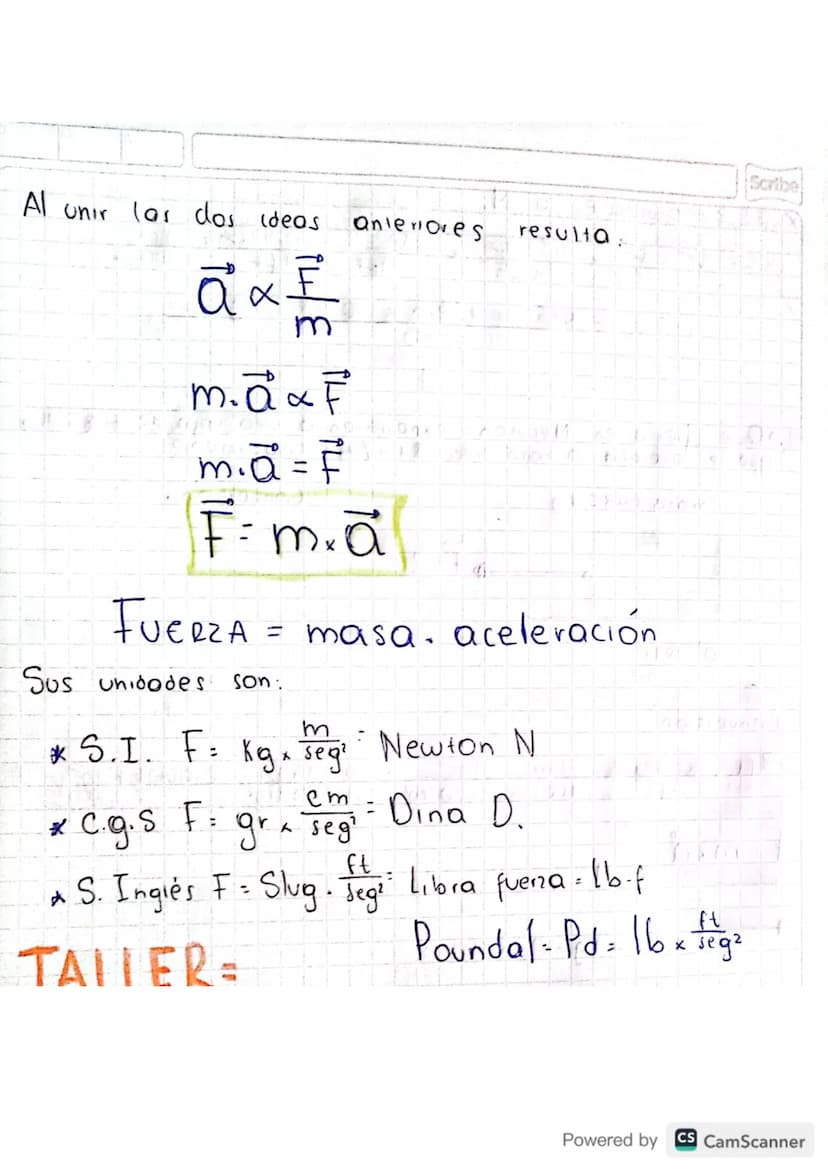 Scribe
Al unir las dos ideas anteriores resulta:
a⃗ ∝ F⃗/m
m.a⃗ ∝ F⃗
m.a⃗ = F⃗
F⃗ = m × a⃗
FUERZA = masa. aceleración
Sus unidades son:
* S.I. F= Kg × m/seg² = Newton N
* C.g.S F= gr × cm/seg² = Dina D.
* S. Inglés F = Slug . ft/seg² = Libra fuerza = lb-f
Poundal = Pd = lb × ft/seg²
TALLER=
Powered by CS CamScanner